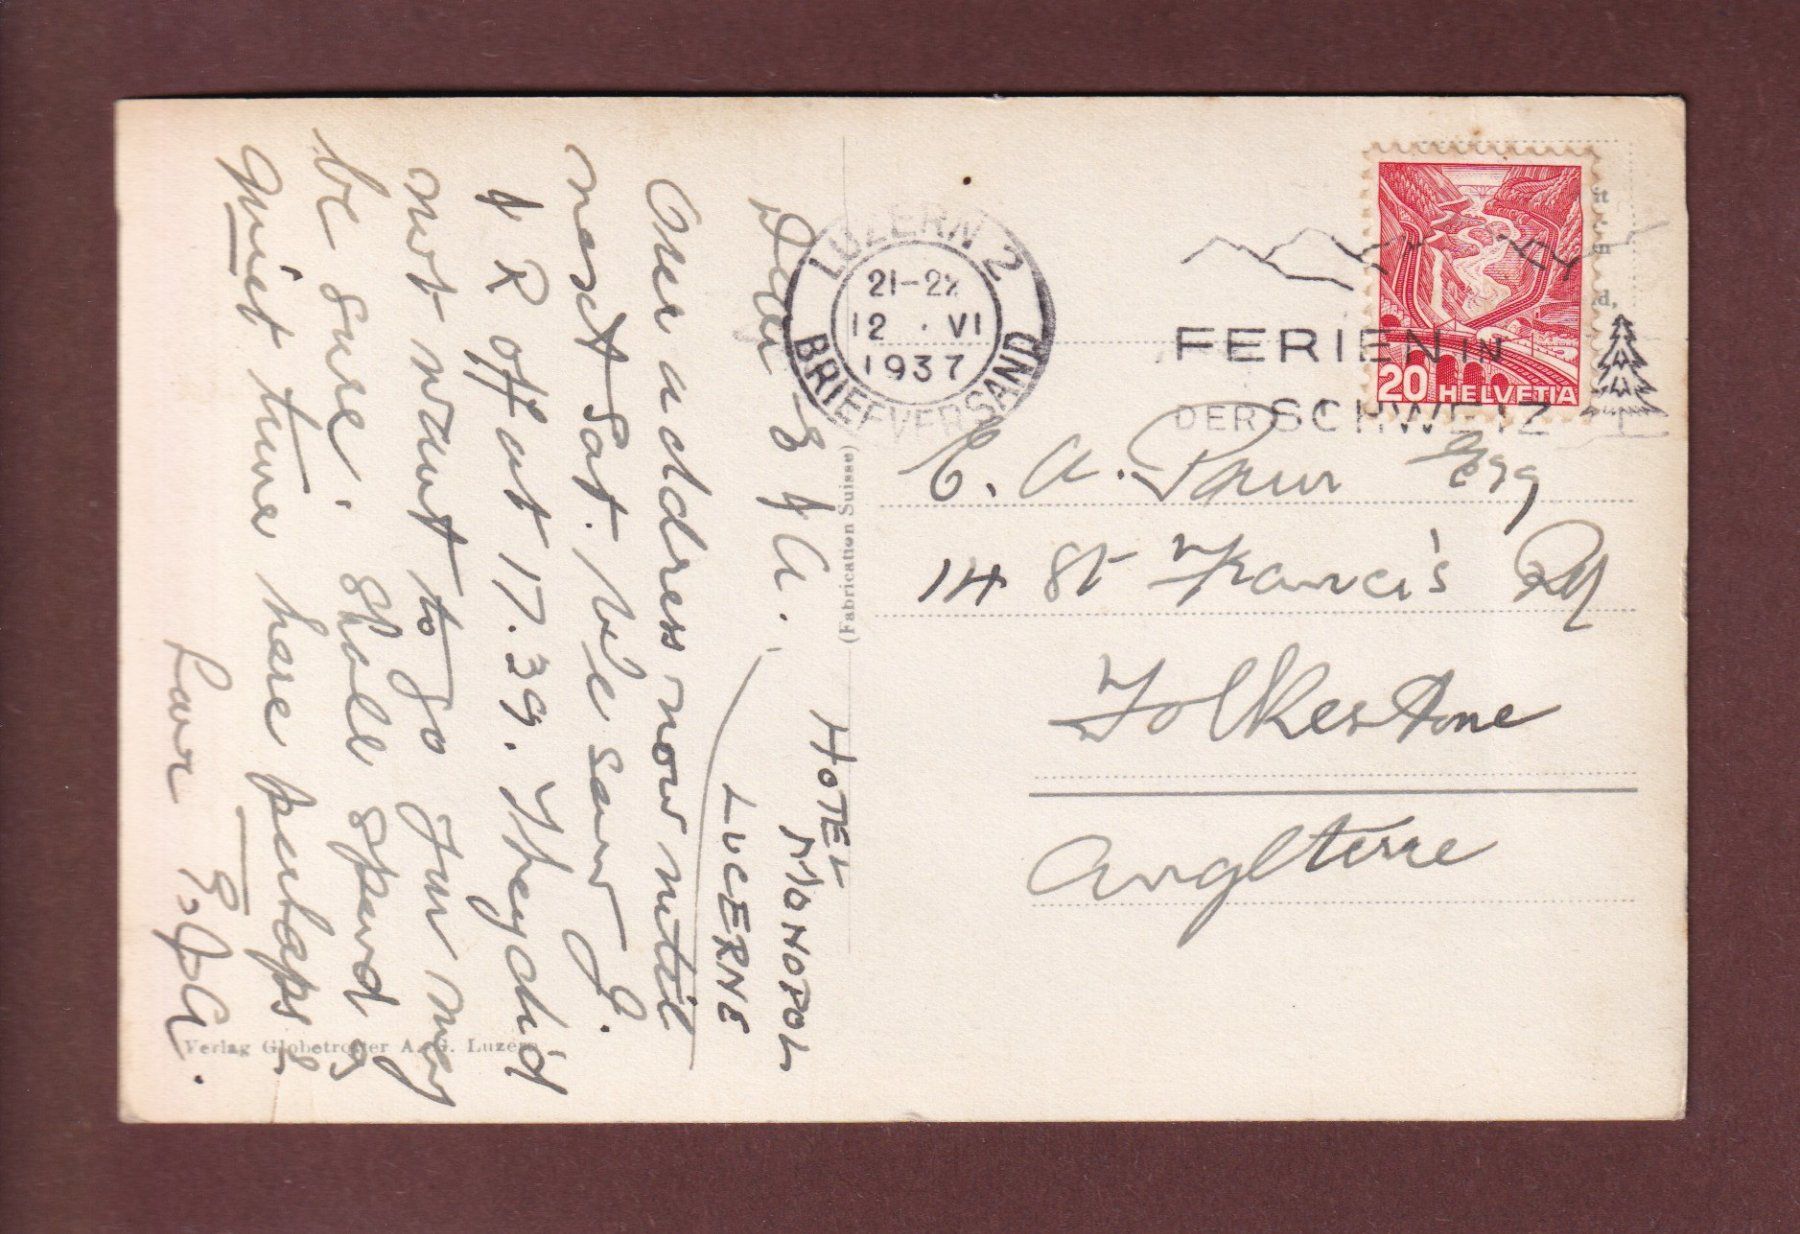 HOTEL
MONOPOL
LUCERNE
Dear E & A.
Our address now until
next Sat. We saw J.
& R off at 17.39. They did
not want to go I'm
be sure. Shall spend
quiet time here perhaps
Love
(Fabrication Suisse)
Verlag Globetrotter A.-G. Luzern
LUZERN 2
21-22
12 . VI
1937
BRIEFVERSAND
FERIEN IN
DER SCHWEIZ
20 HELVETIA
E. A. Esq
14 St Francis Rd
Folkestone
Anglterre